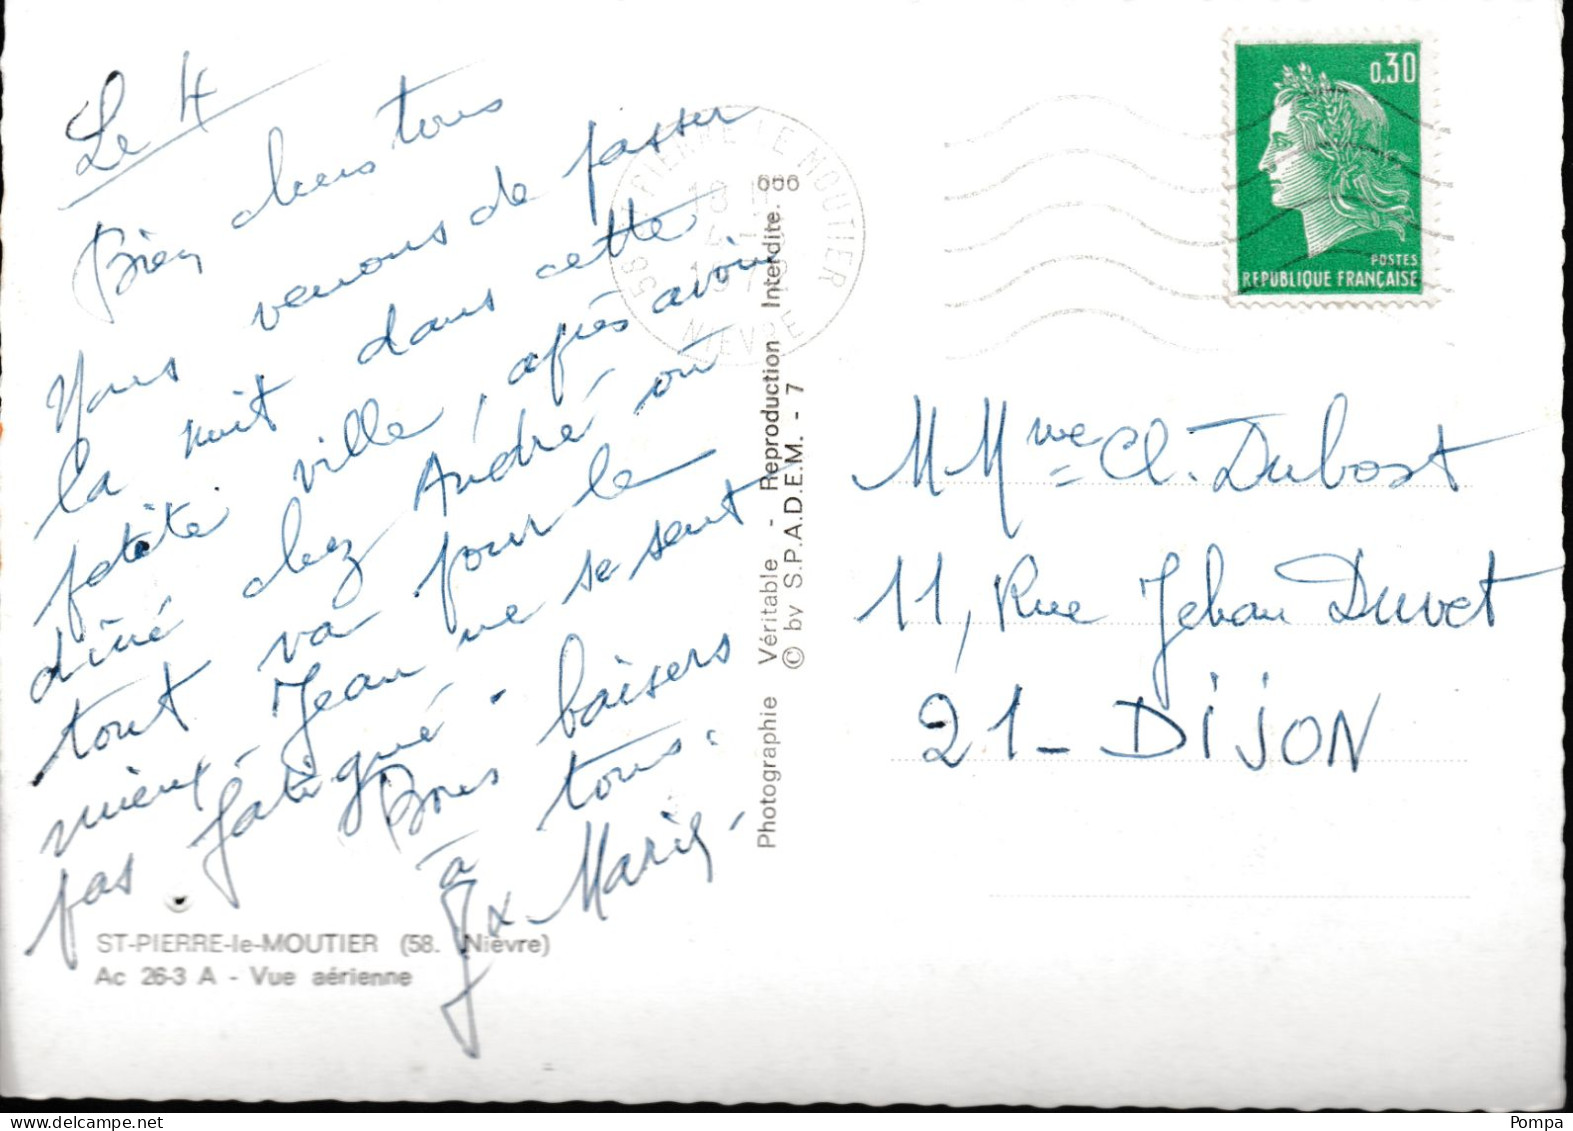 Le 4
Bien chers tous
Nous venons de passer
la nuit dans cette
petite ville, après avoir
dîné chez André où
tout va pour le
mieux - Jean ne se sent
pas fatigué - Bons baisers
à tous.
J x Marie -
ST-PIERRE-le-MOUTIER (58. Nièvre)
Ac 26-3 A - Vue aérienne
Photographie Véritable - Reproduction Interdite. 666
© by S.P.A.D.E.M. - 7
58 ST PIERRE LE MOUTIER
18 H
NIEVRE
0,30
POSTES
REPUBLIQUE FRANÇAISE
M Mme Cl. Dubost
11, Rue Jehan Duvet
21 - DIJON
Pompa